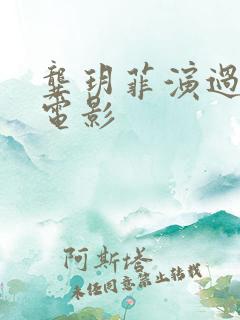 龔玥菲演過
電影
阿斯塔
未经同意禁止转载